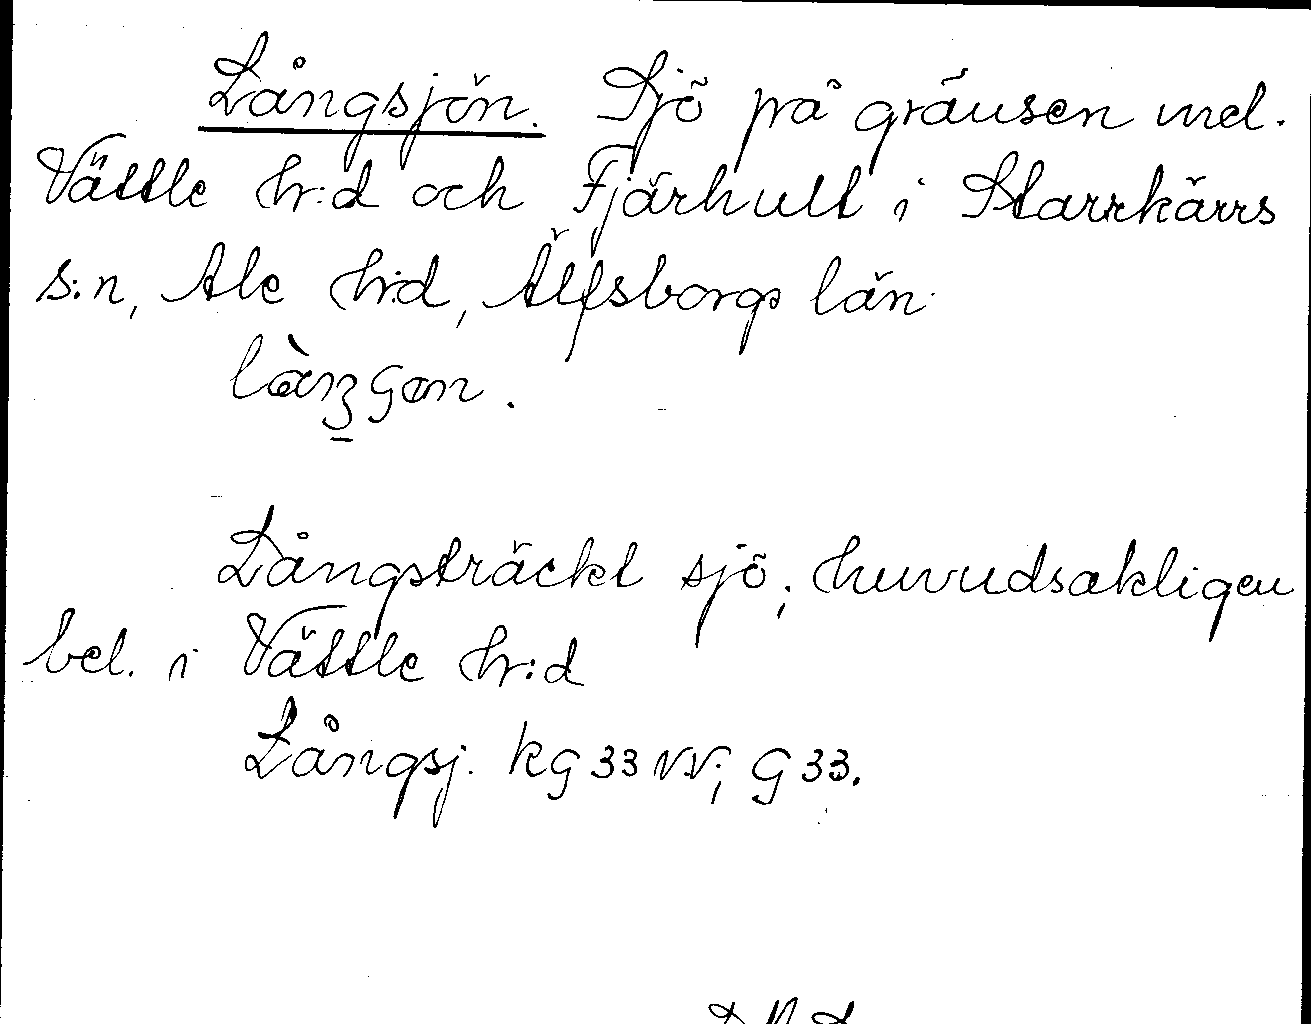 Långsjön. Sjö på gränsen mel.
Vättle h:d och Fjärhult i Starrkärrs
s:n, Ale h:d, Älfsborgs län.
Långsträckt sjö; huvudsakligen
bel. i Vättle h:d
Långsj. kG 33 NV; G 33.